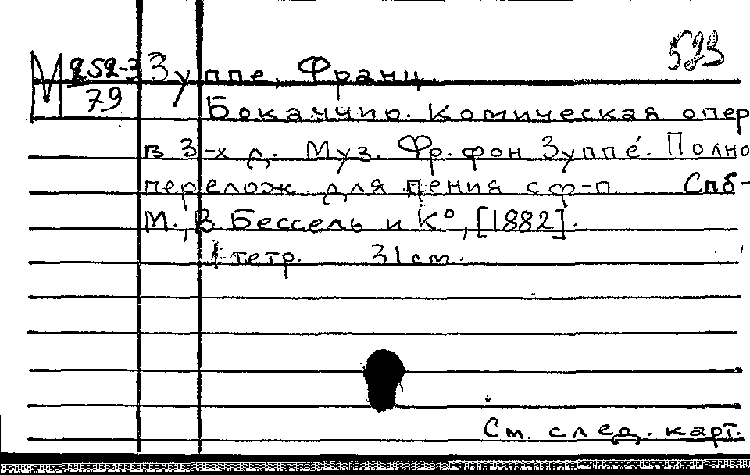 523
М 252-3 Зуппе, Франц
79
Бокаччио. Комическая опер
в 3-х д. Муз. Фр. фон Зуппе. Полно
перелож для пения с ф-п Спб-
М., В Бессель и К°, [1882].
1 тетр. 31 см.
См. след. карт.